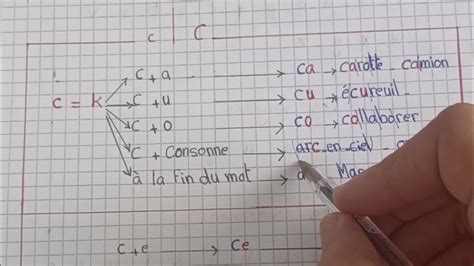 c | C
c + a → ca → carotte - camion
c = k c + u → cu → écureuil -
c + o → co → collaborer
c + consonne → arc-en-ciel -
à la fin du mot →
c + e → ce